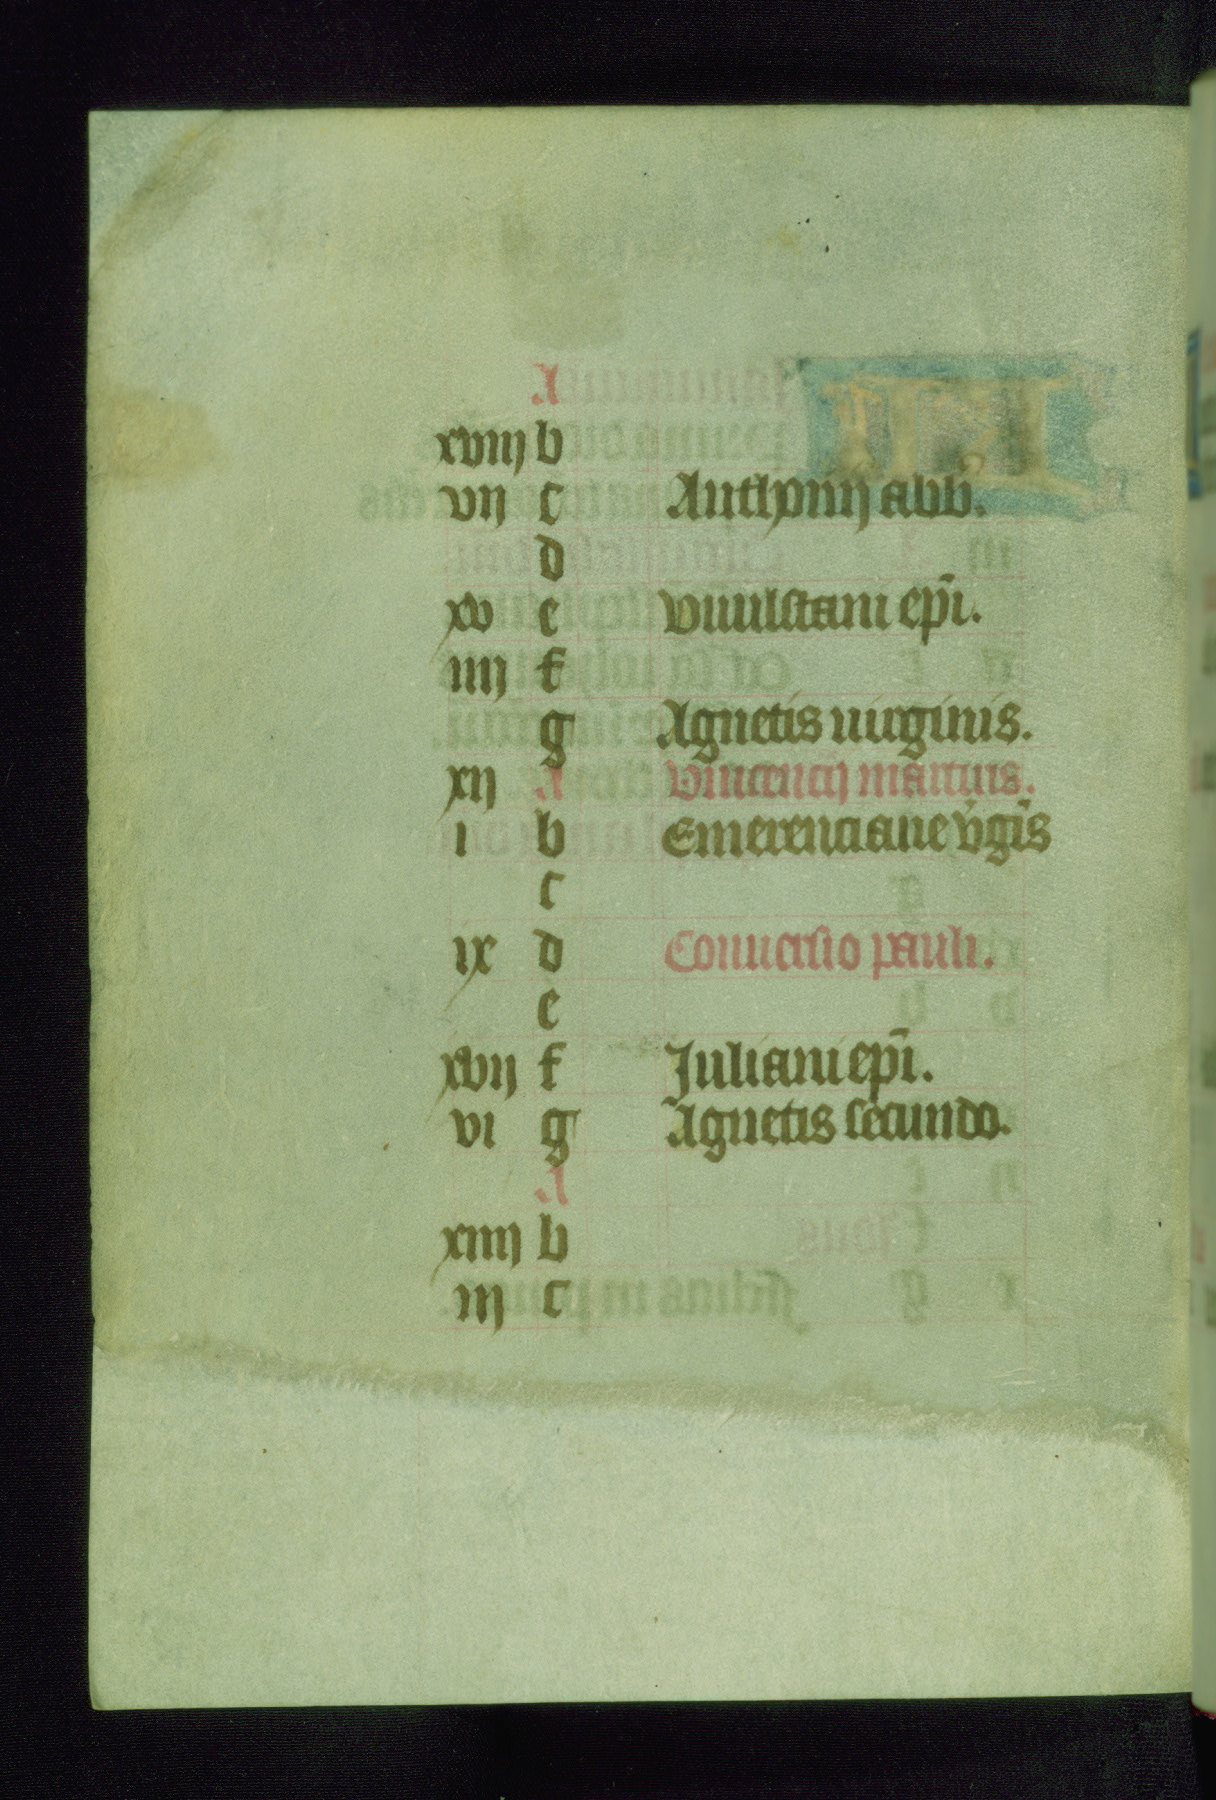 .A.
xviij b
vij c Anthonij abb.
d
xv e Wulstani ep̄i.
iiij f
g Agnetis uirginis.
xij .A. Vincencij martiris.
i b Emerenciane v̇gīs
c
ix d Conuersio pauli.
e
xvij f Juliani ep̄i.
vi g Agnetis secundo.
.A.
xiiij b
iij c